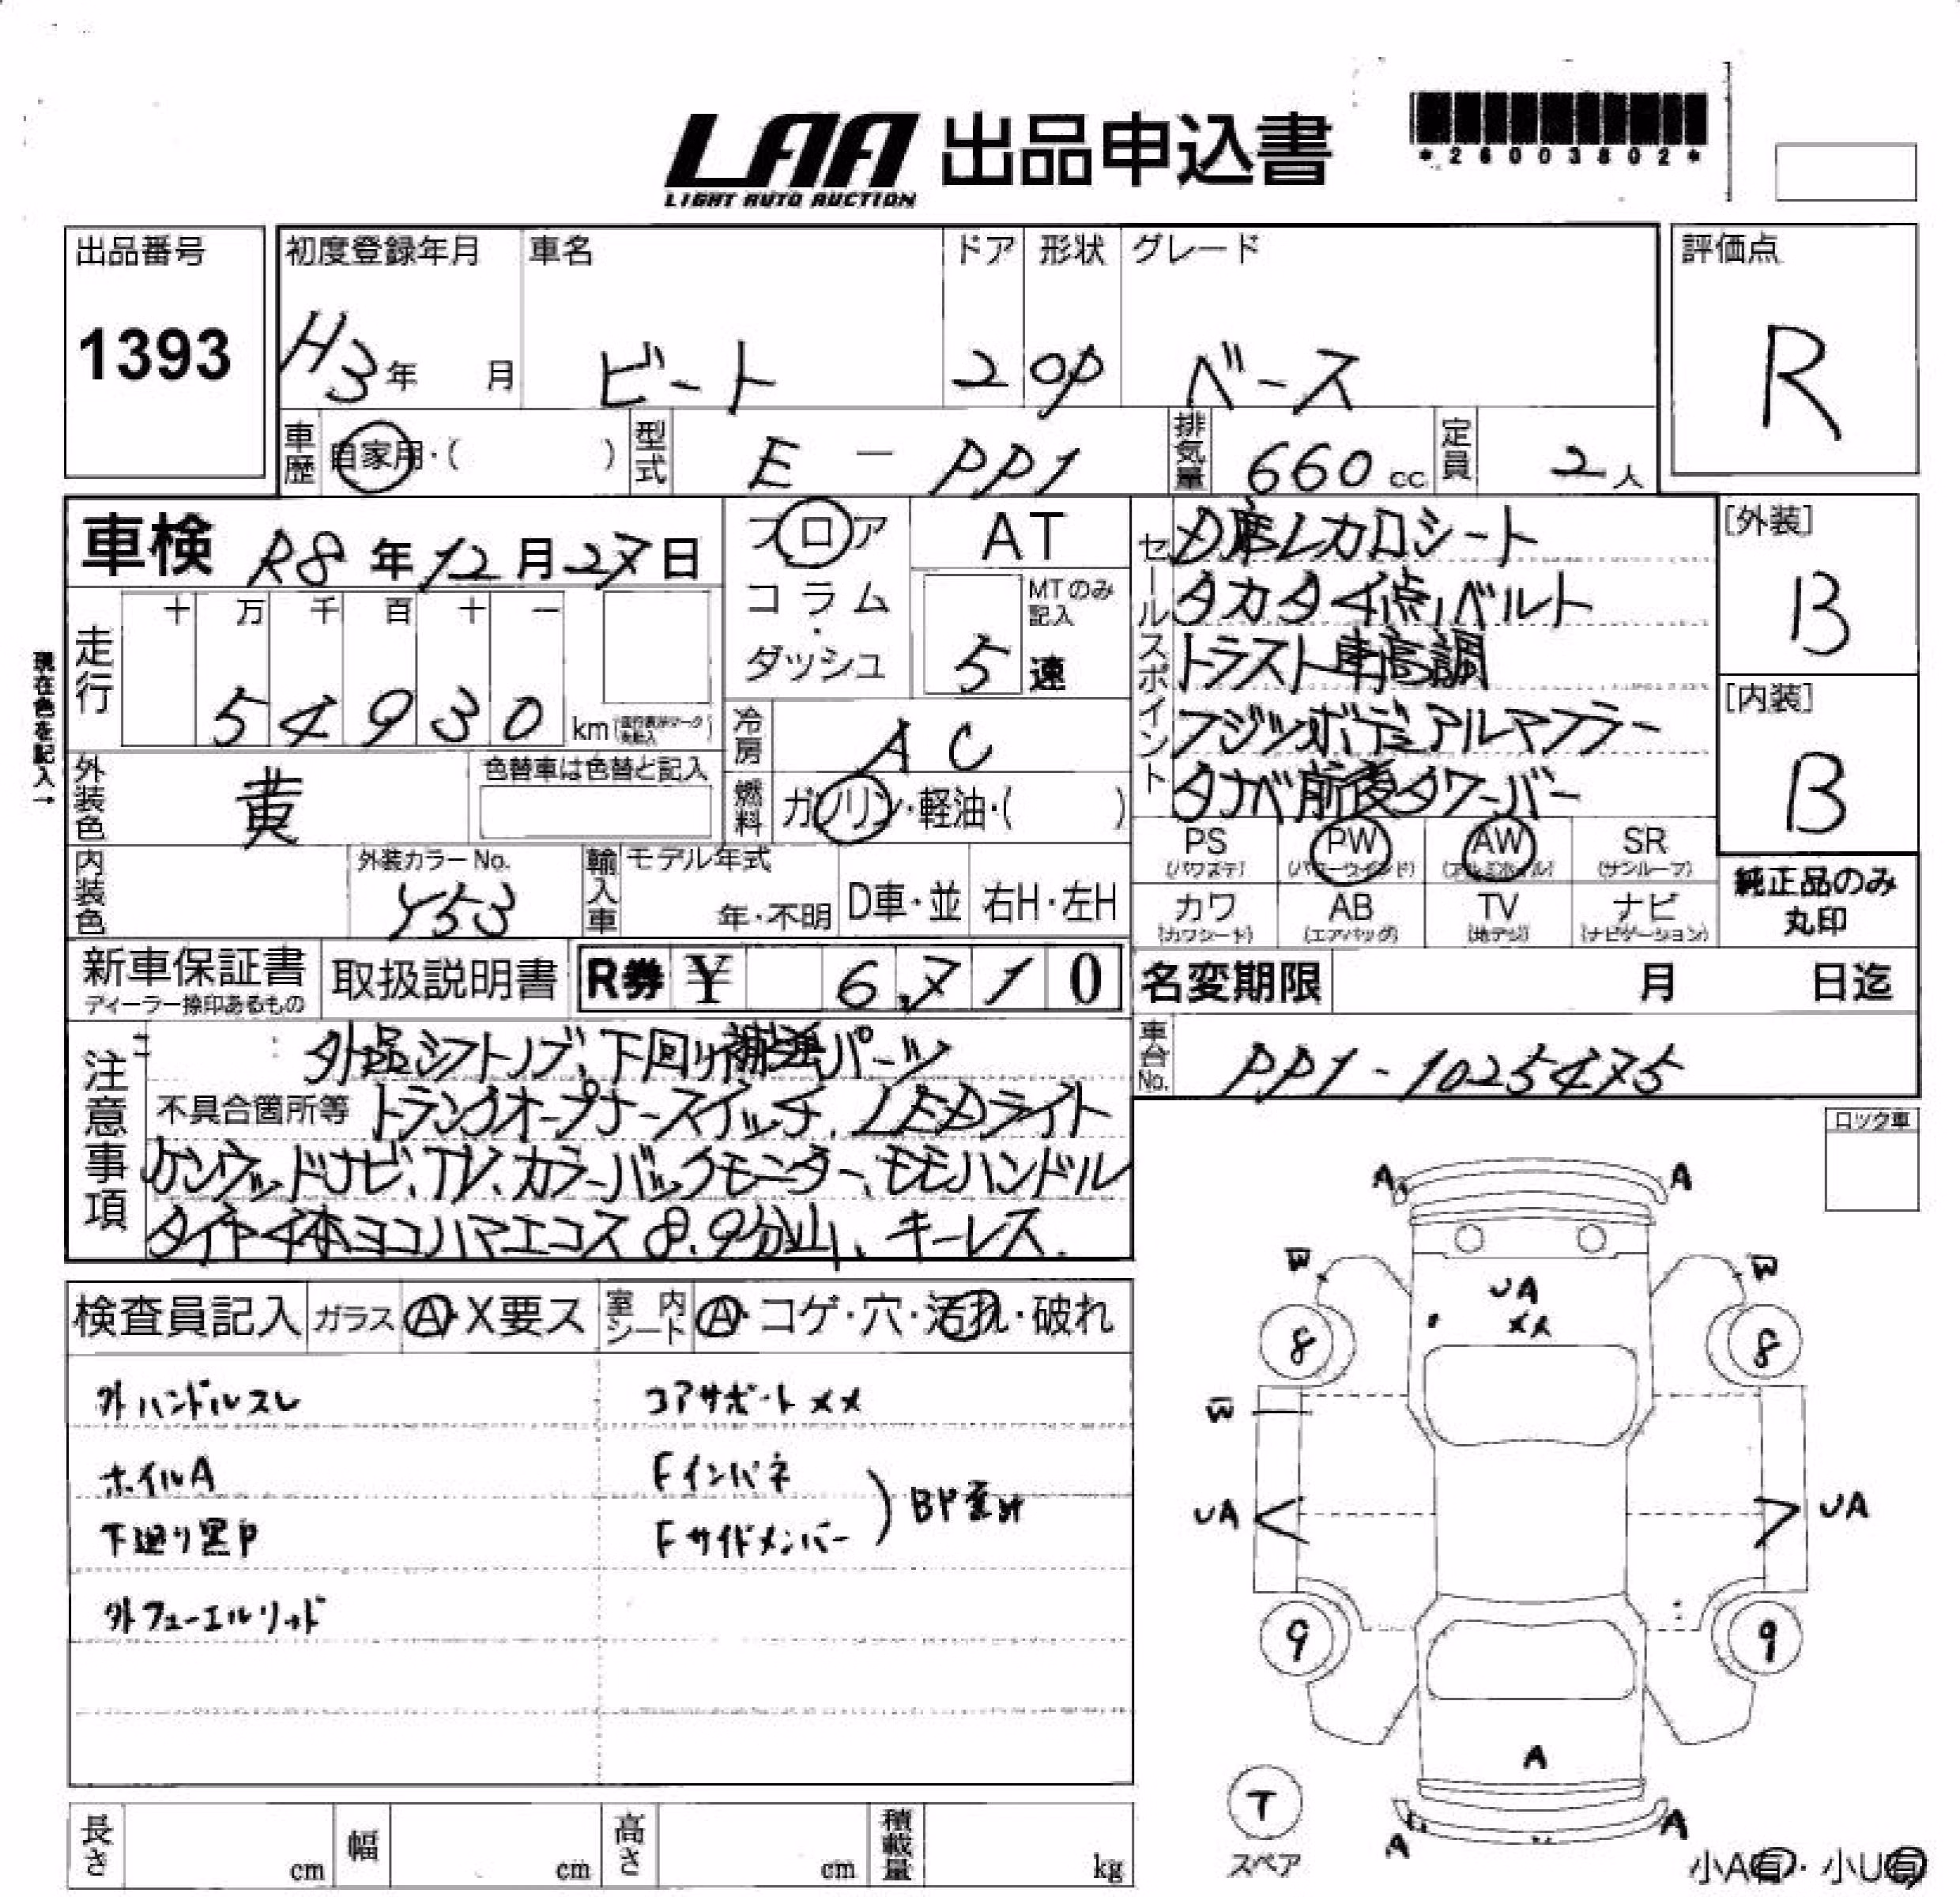 LAA 出品申込書
LIGHT AUTO AUCTION
*26003802*
出品番号
1393
初度登録年月
H3年 月
車名
ビート
ドア
2
形状
OP
グレード
ベース
評価点
R
車歴
自家用・( )
型式
E - PP1
排気量
660 cc
定員
2人
車検 R8年12月27日
フロア
コラム
・
ダッシュ
AT
MTのみ
記入
5速
セールスポイント
D席レカロシート
タカタ4点ベルト
トラスト車高調
フジツボデュアルマフラー
タナベ前後タワーバー
[外装]
B
[内装]
B
現在色を記入→
走行
十 万 千 百 十 一
5 4 9 3 0 km
冷房
AC
燃料
ガソリン・軽油・( )
外装色
黄
色替車は色替と記入
PS
(パワステ)
PW
(パワーウインド)
AW
(アルミホイル)
SR
(サンルーフ)
カワ
(カワシート)
AB
(エアバッグ)
TV
(地デジ)
ナビ
(ナビゲーション)
純正品のみ
丸印
内装色
外装カラーNo.
Y53
輸入車
モデル年式
年・不明
D車・並
右H・左H
新車保証書
ディーラー捺印あるもの
取扱説明書
R券 ¥ 6,710
名変期限 月 日迄
車台No.
PP1-1025475
注意事項
外品シフトノブ、下回り補強パーツ
不具合箇所等 トランクオープナースイッチ、LEDライト
ケンウッドナビ、TV、カラーバックモニター、モモハンドル
タイヤ4本ヨコハマエコス 8.9分山、キーレス.
ロック車
検査員記入
ガラス A・X要ス
室内シート A・コゲ・穴・汚れ・破れ
外ハンドルスレ
コアサポートXX
ホイルA
Fインパネ
下廻り黒P
Fサイドメンバー
外フューエルリッド
A A
W W
UA
XX
8 8
W
UA UA
9 9
A
A A
T
スペア
小A有・小U有
長さ cm
幅 cm
高さ cm
積載量 kg